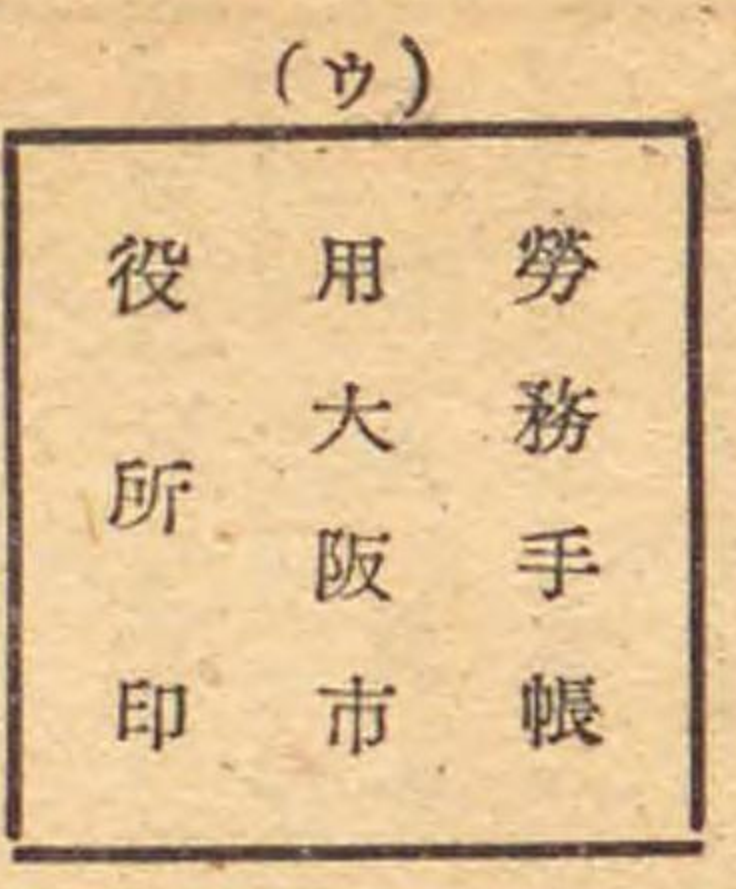 (ゥ)
勞務手帳
用大阪市
役所印